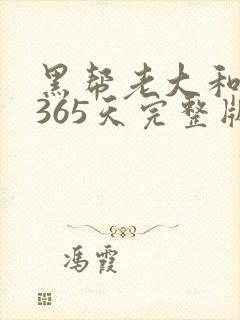 黑帮老大和
365天完整版
冯霞